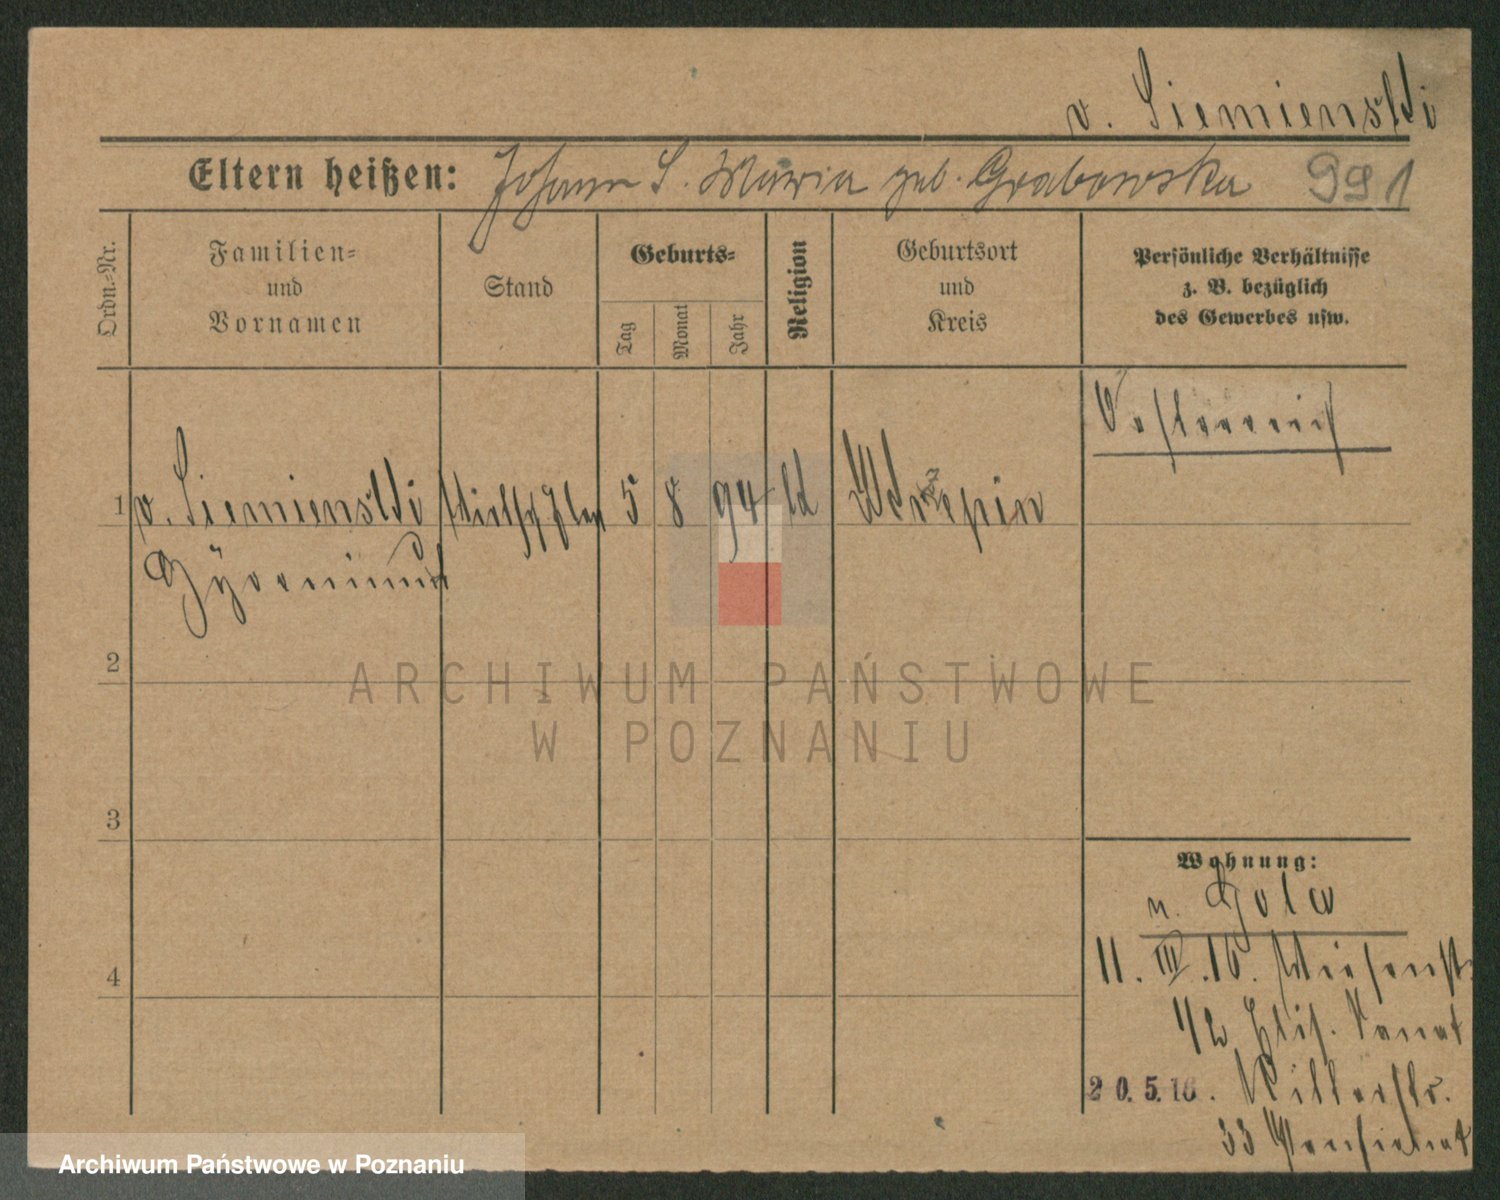 v. Siemienski
Eltern heißen: Johann S. Maria geb. Grabowska 991
Ordn.-Nr.
Familien=
und
Vornamen
Stand
Geburts=
Tag
Monat
Jahr
Religion
Geburtsort
und
Kreis
Persönliche Verhältnisse
z. B. bezüglich
des Gewerbes usw.
Oesterreich
1 v. Siemienski 5 8 94
2
3
4
Wohnung:
n. Gola
11. III. 16. Wiesenst.
1/2 Elis.
20.5.16. Ritterstr.
33 Pensionat
ARCHIWUM PAŃSTWOWE
W POZNANIU
Archiwum Państwowe w Poznaniu